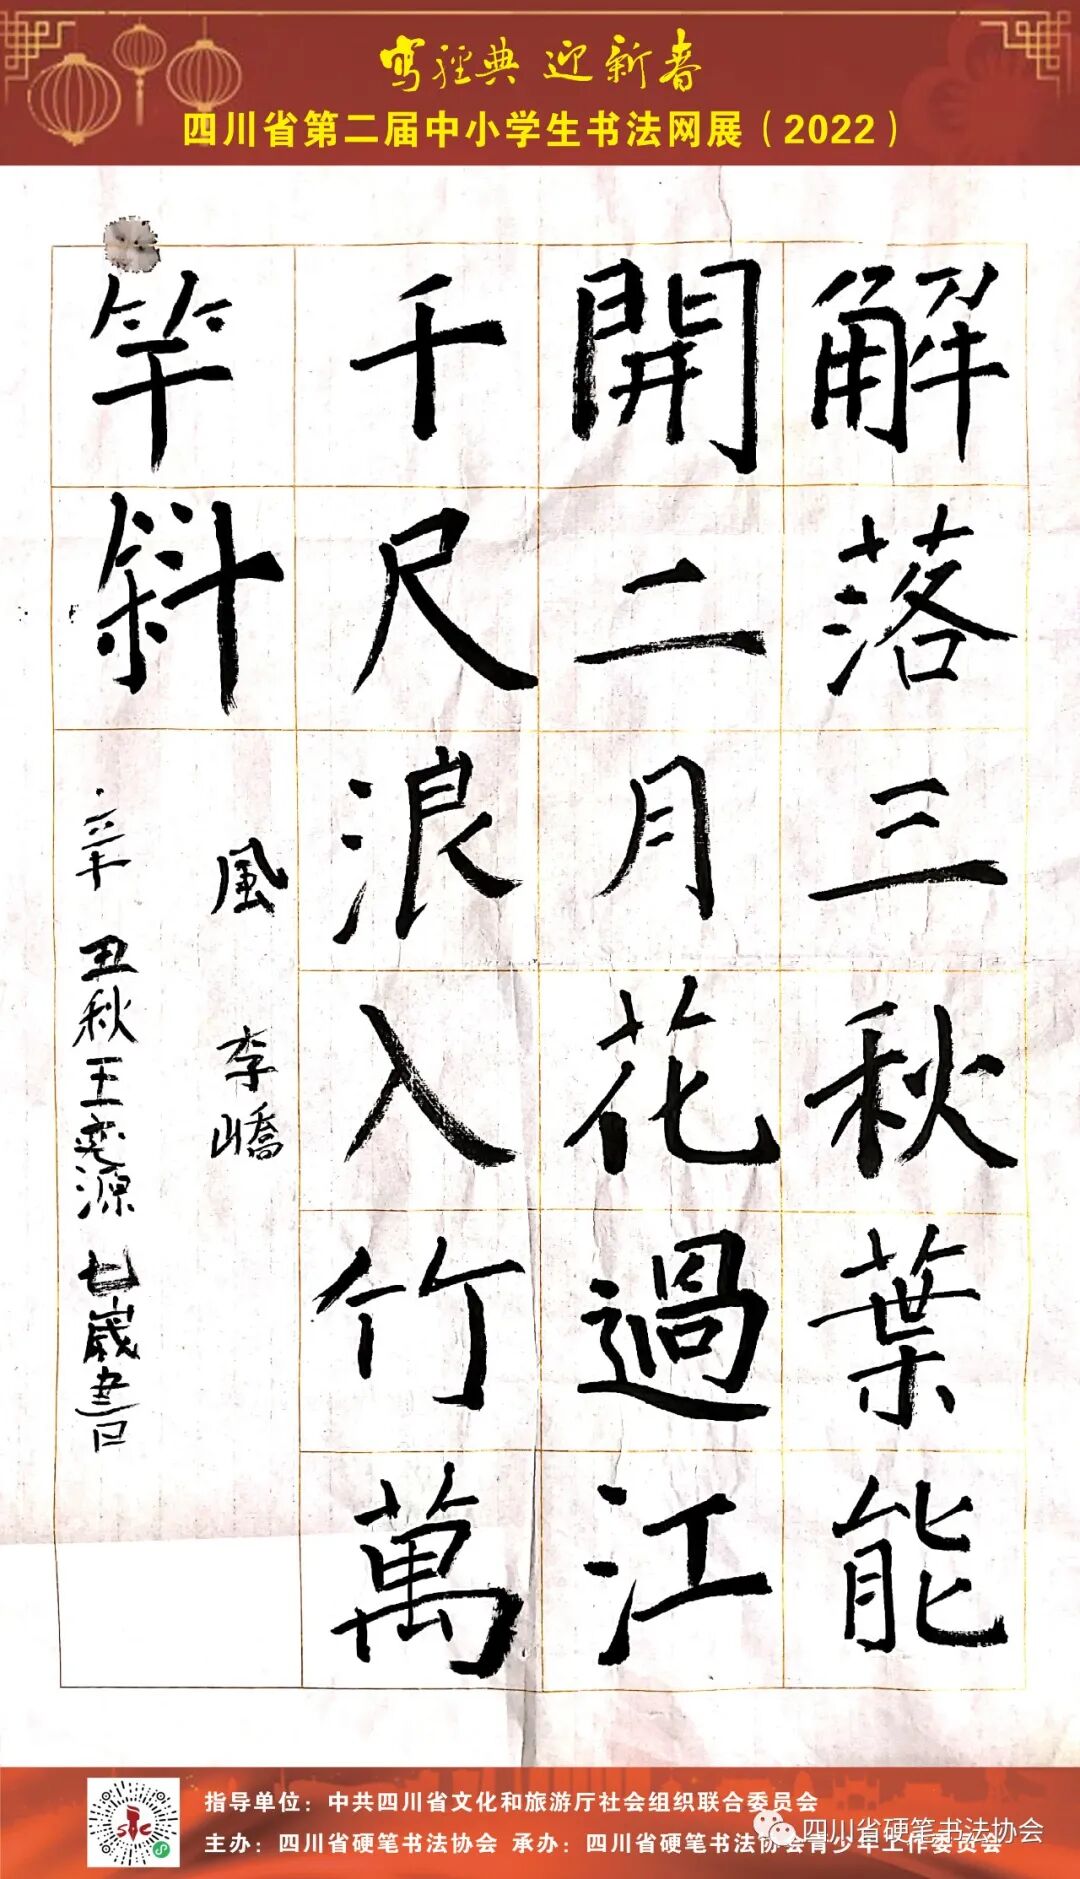 写经典 迎新春
四川省第二届中小学生书法网展（2022）
解落三秋葉能
開二月花過江
千尺浪入竹萬
竿斜
風 李嶠
辛丑秋王奕源七歲書
指导单位：中共四川省文化和旅游厅社会组织联合委员会
主办：四川省硬笔书法协会 承办：四川省硬笔书法协会青少年工作委员会
四川省硬笔书法协会